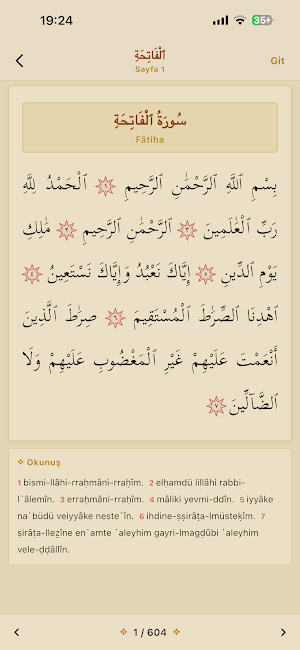 19:24
35
ٱلْفَاتِحَةِ
Sayfa 1
Git
سُورَةُ ٱلْفَاتِحَةِ
Fâtiha
بِسْمِ ٱللَّهِ ٱلرَّحْمَٰنِ ٱلرَّحِيمِ ١ ٱلْحَمْدُ لِلَّهِ
رَبِّ ٱلْعَٰلَمِينَ ٢ ٱلرَّحْمَٰنِ ٱلرَّحِيمِ ٣ مَٰلِكِ
يَوْمِ ٱلدِّينِ ٤ إِيَّاكَ نَعْبُدُ وَإِيَّاكَ نَسْتَعِينُ ٥
ٱهْدِنَا ٱلصِّرَٰطَ ٱلْمُسْتَقِيمَ ٦ صِرَٰطَ ٱلَّذِينَ
أَنْعَمْتَ عَلَيْهِمْ غَيْرِ ٱلْمَغْضُوبِ عَلَيْهِمْ وَلَا
ٱلضَّآلِّينَ ٧
❖ Okunuş
1 bismi-llâhi-rraḥmâni-rraḥîm. 2 elḥamdü lillâhi rabbi-
l`âlemîn. 3 erraḥmâni-rraḥîm. 4 mâliki yevmi-ddîn. 5 iyyâke
na`büdü veiyyâke neste`în. 6 ihdine-ṣṣirâṭa-lmüsteḳîm. 7
ṣirâṭa-lleẕîne en`amte `aleyhim gayri-lmagḍûbi `aleyhim
vele-ḍḍâllîn.
1 / 604